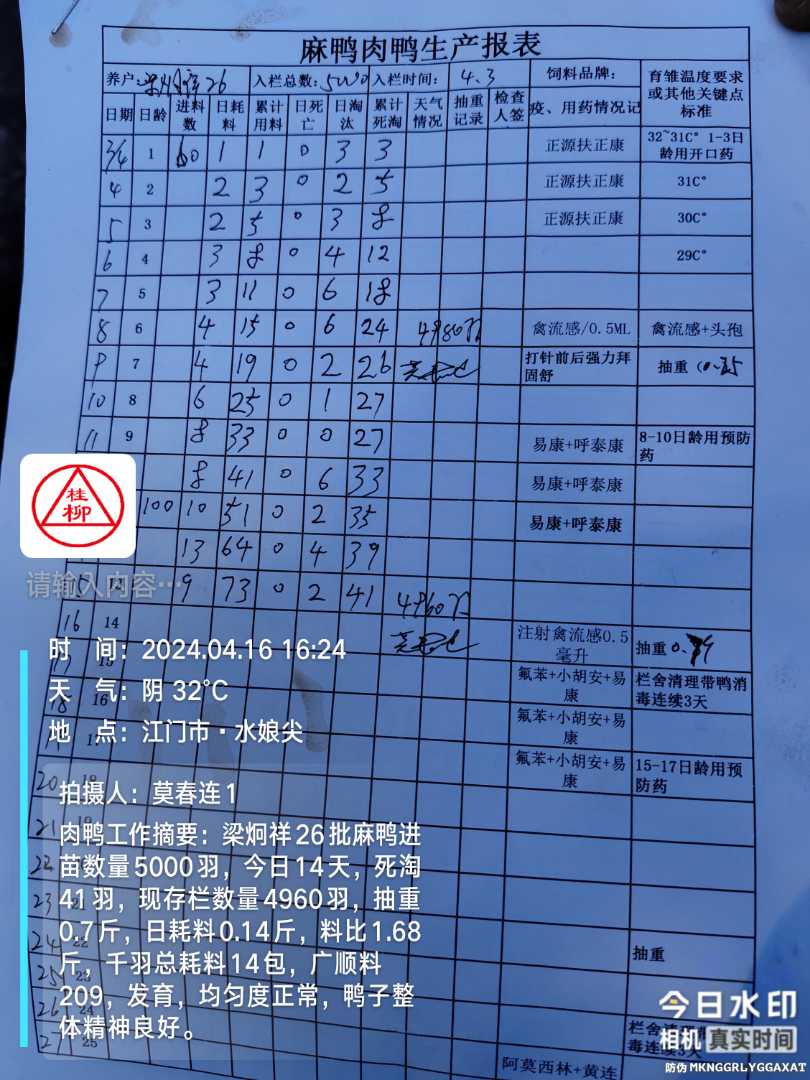 麻鸭肉鸭生产报表
养户: 26 入栏总数:5000 入栏时间: 4.3 饲料品牌: 育雏温度要求或其他关键点标准
日期 日龄 进料数 日耗料 累计用料 日死亡 日淘汰 累计死淘 天气情况 抽重记录 检查人签 疫、用药情况记
3/4 1 60 1 1 0 3 3 正源扶正康 32~31C° 1-3日龄用开口药
4 2 2 3 0 2 5 正源扶正康 31C°
5 3 2 5 0 3 8 正源扶正康 30C°
6 4 3 8 0 4 12 29C°
7 5 3 11 0 6 18
8 6 4 15 0 6 24 4980 禽流感/0.5ML 禽流感+头孢
9 7 4 19 0 2 26 打针前后强力拜固舒 抽重(0.
10 8 6 25 0 1 27
11 9 8 33 0 0 27 易康+呼泰康 8-10日龄用预防药
8 41 0 6 33 易康+呼泰康
100 10 51 0 2 35 易康+呼泰康
13 64 0 4 39
9 73 0 2 41 4960
16 14 注射禽流感0.5毫升 抽重0.
氟苯+小胡安+易康 栏舍清理带鸭消毒连续3天
18 16 氟苯+小胡安+易康
氟苯+小胡安+易康 15-17日龄用预防药
20
21
22
23
24 抽重
25
26
27 25 栏舍清 毒连续3天
阿莫西林+黄连
桂柳
请输入内容…
时 间：2024.04.16 16:24
天 气：阴 32℃
地 点：江门市·水娘尖
拍摄人：莫春连1
肉鸭工作摘要：梁炯祥26批麻鸭进
苗数量5000羽，今日14天，死淘
41羽，现存栏数量4960羽，抽重
0.7斤，日耗料0.14斤，料比1.68
斤，千羽总耗料14包，广顺料
209，发育，均匀度正常，鸭子整
体精神良好。
今日水印
相机 真实时间
防伪 MKNGGRLYGGAXAT